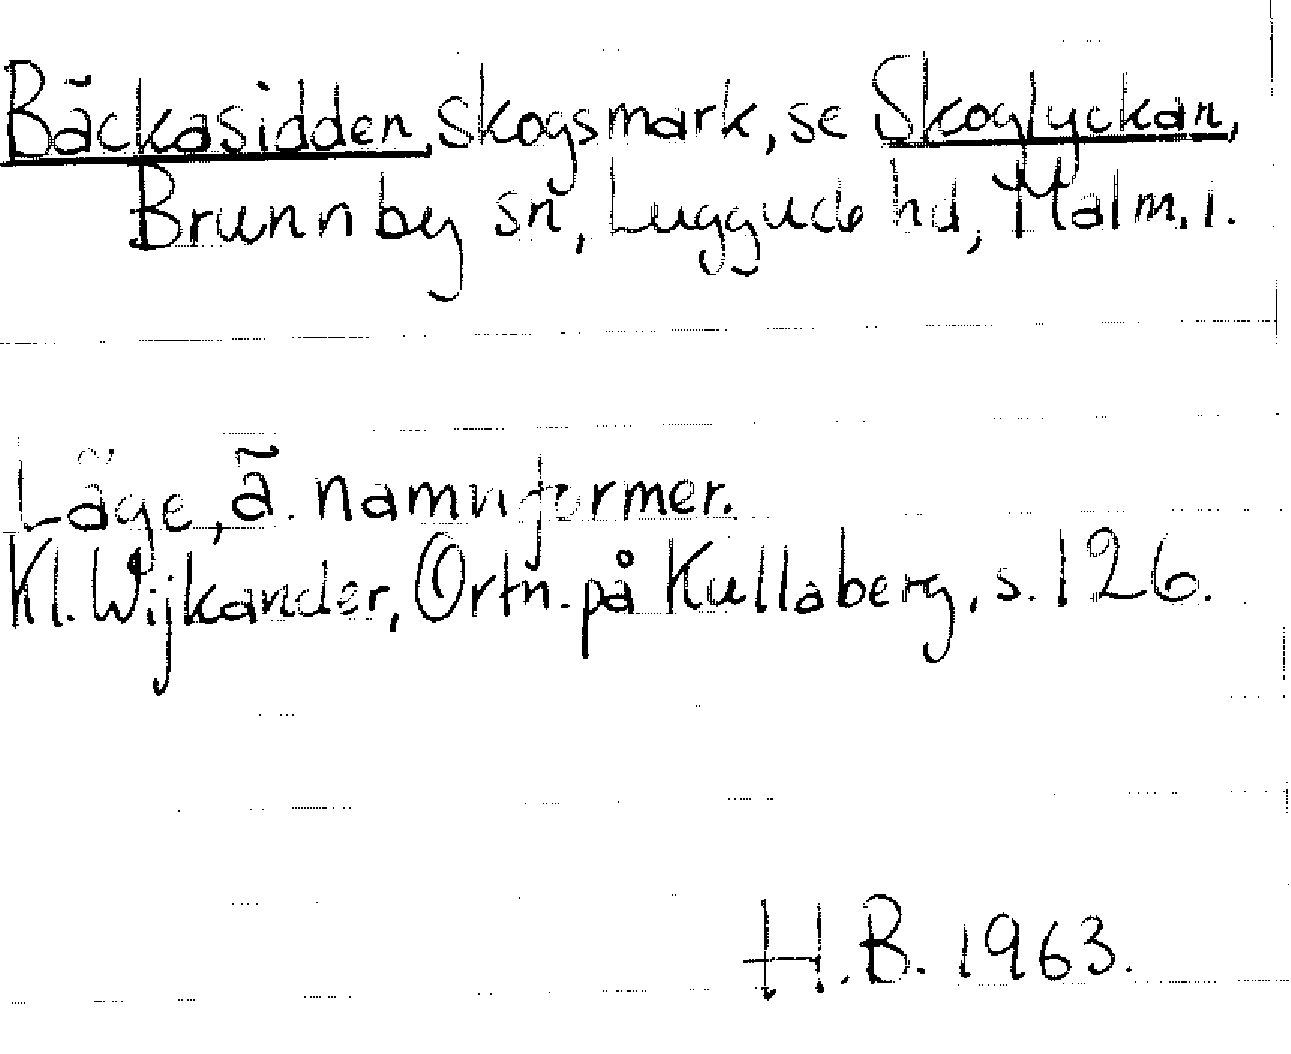 Bäckasidden, skogsmark, se Skoglyckan,
Brunnby sn, Luggude hd, Malm. l.
Läge, ä. namnformer.
Kl. Wijkander, Ortn. på Kullaberg, s. 126.
H.B. 1963.